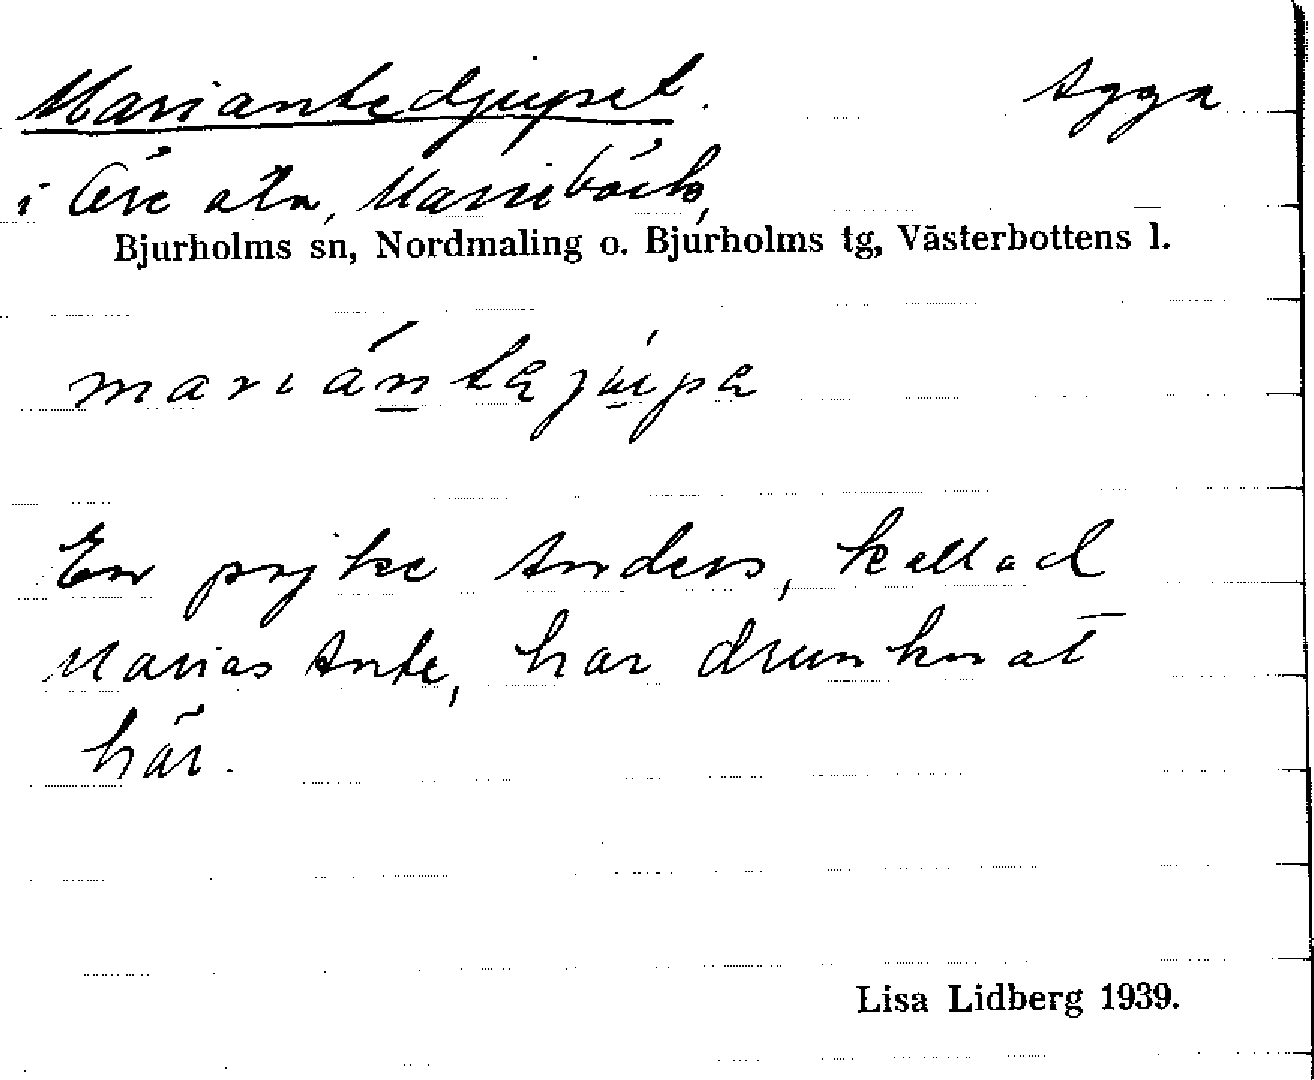 Mariantedjupet. Agga
i Öre älv, Mariebäck,
Bjurholms sn, Nordmaling o. Bjurholms tg, Västerbottens l.
En pojke Anders, kallad
Marias Ante, har drunknat
här.
Lisa Lidberg 1939.